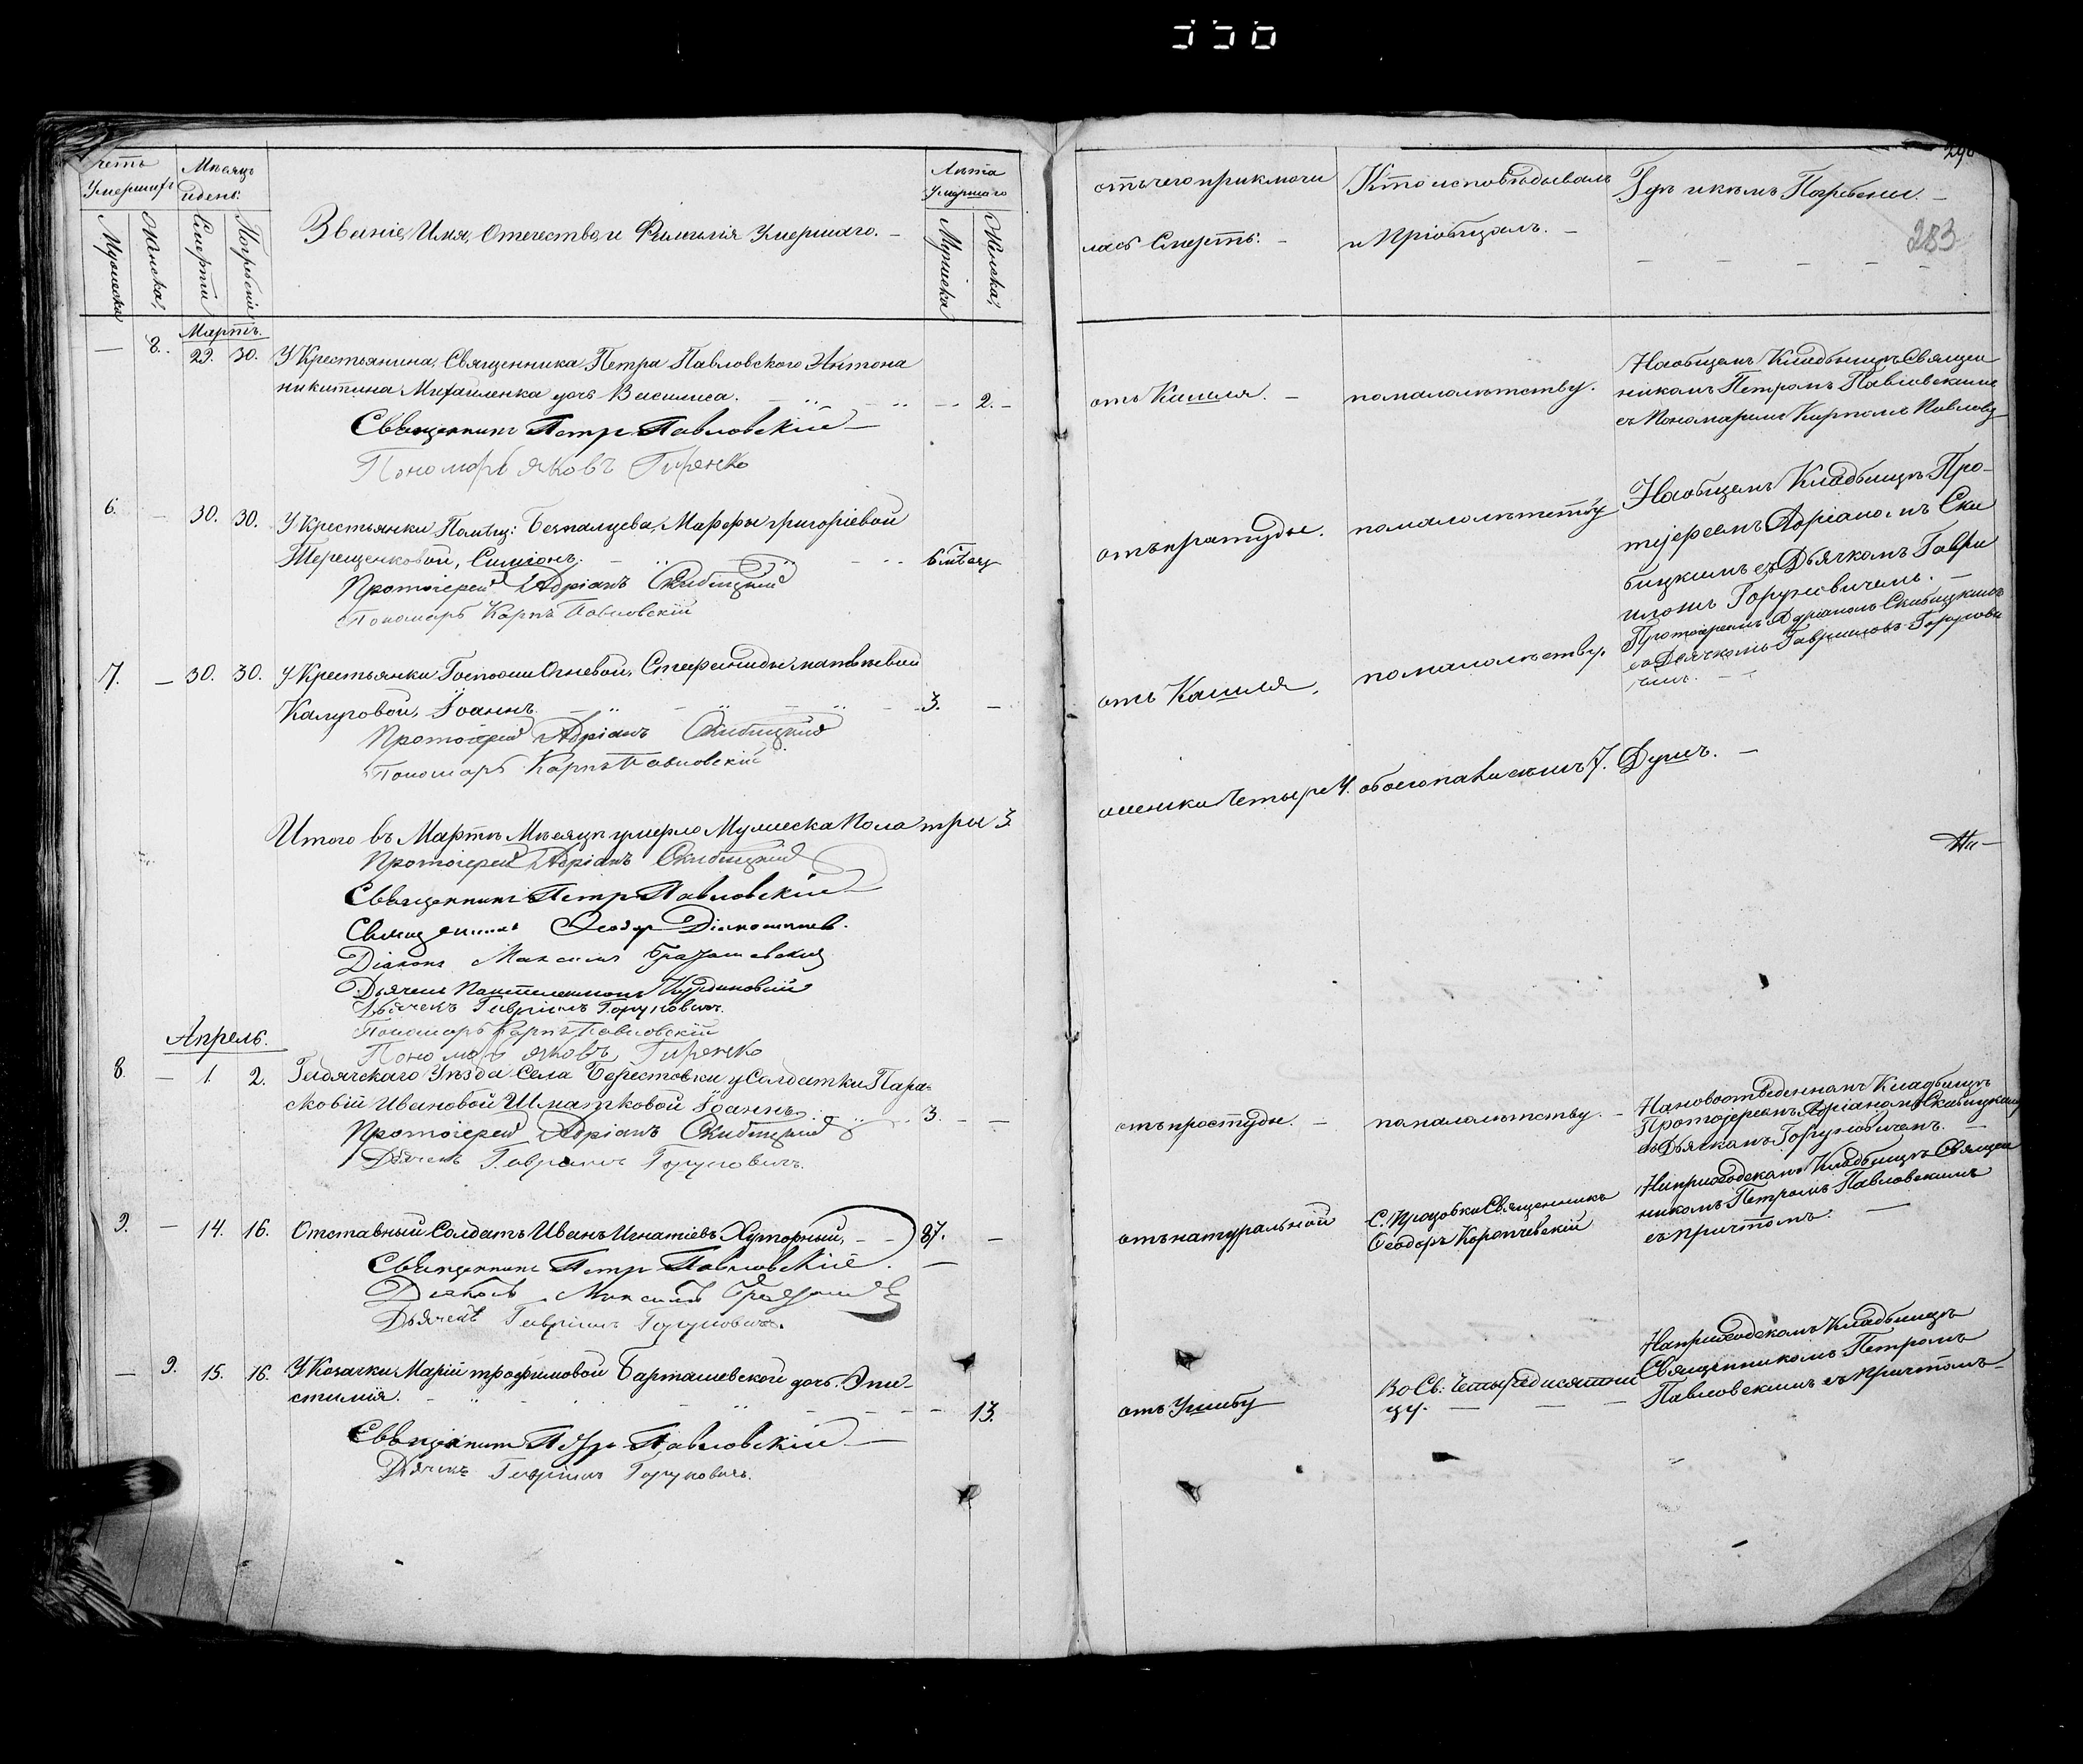 556
290
283
Счетъ Умершихъ
Мѣсяцъ и день:
Мужеска
Женска,
Смерти
Погребенія
Званіе, Имя, Отечество, и Фамилія Умершаго. —
Лѣта Умершаго
Мужеска
Женска,
отъ чего приключи
лась Смерть: —
Кто исповѣдывалъ
и Пріобщалъ. —
Гдѣ и кѣмъ Погребены. —
Мартъ.
— 8. 29. 30. У Крестьянина, Священника Петра Павловского Антона
никитина Михайленка дочь Василиса. — 2. —
отъ Кашля. —
по малолѣтству.
На общемъ Кладбищѣ Священ
никомъ Петромъ Павловскимъ
съ Пономаремъ Карпомъ Павловс
Священникъ Петръ Павловскій
Пономарь Яковъ Гиренко
6. — 30. 30. У Крестьянки Помѣщ: Безпалцева, Марфы григоріевой
Терещенковой, Симіонъ. — 6 мѣсяц
отъ простуды.
по малолѣтству
На общемъ Кладбищѣ Про-
тоіереемъ Адріаномъ Ски
бицкимъ съ Дьячкомъ Гаври
иломъ Горуновичемъ. —
Протоіерей Адріанъ Скибицкій
Пономарь Карпъ Павловскій
7. — 30. 30. У Крестьянки Госпожи Огневой, Стефаниды матвѣевой
Калуговой, Іоаннъ — 3. —
отъ Кашля.
по малолѣтству.
Протоіереемъ Адріаномъ Скибицкимъ
съ Дьячкомъ Гавриіломъ Горунови
чемъ. —
Протоіерей Адріанъ Скибицкій
Пономарь Карпъ Павловскій
Итого въ Мартѣ Мѣсяцѣ умерло Мужеска Пола три 3.
а женска Четыре 4. обоего пола 7. Душъ. —
Протоіерей Адріанъ Скибицкій
Священникъ Петръ Павловскій
Священникъ Ѳеодоръ
Діаконъ Максимъ
Дьячекъ Пантелеимонъ
Дьячекъ Гавріилъ Горуновичъ.
Пономарь Карпъ Павловскій
Пономарь Яковъ Гиренко
Апрель.
8. — 1. 2. Гадячскаго Уѣзда Села Берестовки у Солдатки Пара-
сковіи Ивановой Шматковой Іоаннъ. — 3. —
отъ простуды. —
по малолѣтству. —
На новоотведенномъ Кладбищѣ
Протоіереемъ Адріаномъ Скибицкимъ
съ Дьячкомъ Горуновичемъ. —
Протоіерей Адріанъ Скибицкій
Дьячекъ Гавріилъ Горуновичъ.
9. — 14. 16. Отставный Солдатъ Иванъ Игнатіевъ Хуторный, — 87. —
отъ натуральной
Священникъ
Ѳеодоръ
На приходскомъ Кладбищѣ Священ
никомъ Петромъ Павловскимъ
съ причтомъ. —
Священникъ Петръ Павловскій.
Діаконъ Максимъ
Дьячекъ Гавріилъ Горуновичъ.
— 9. 15. 16. У Козачки Маріи трофимовой Барташевской дочь Эпи-
стимія. — 13.
отъ Ушибу
Во Св: Четыредисятни
цу. —
На приходскомъ Кладбищѣ
Священникомъ Петромъ
Павловскимъ съ причтомъ —
Священникъ Петръ Павловскій
Дьячекъ Гавріилъ Горуновичъ.